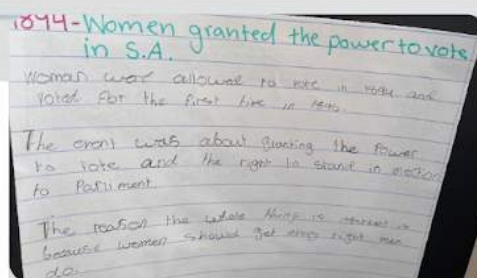 1894-Women granted the power to vote
in S.A.
Woman was allowed to vote in and
voted for the first time in
The event was about granting the Power
to vote and the right to stand in election
to Parliment.
The reason the whole thing is is
because women should get every right men
do.